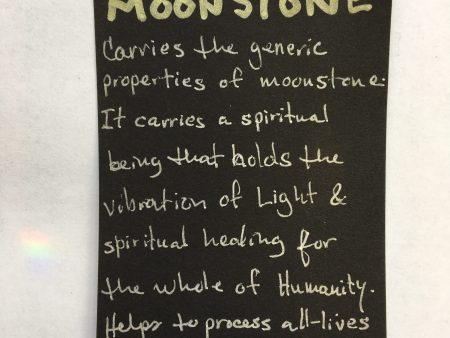 MOONSTONE
Carries the generic
properties of moonstone.
It carries a spiritual
being that holds the
vibration of Light &
spiritual healing for
the whole of Humanity.
Helps to process all-lives